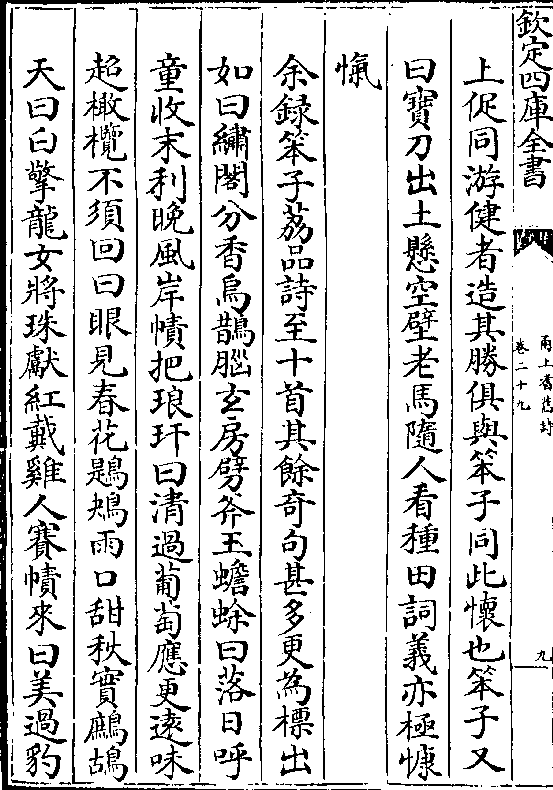 欽定四庫全書
甬上耆舊詩
卷二十九
九
上促同游健者造其勝俱與笨子同此懷也笨子又
曰寶刀出土懸空壁老馬隨人看種田詞義亦極慷
慨
余録笨子荔品詩至十首其餘奇句甚多更為標出
如曰繡閣分香烏鵲腦玄房劈斧玉蟾蜍曰落日呼
童收末利晚風岸幘把琅玕曰清過葡萄應更逺味
超橄欖不須回曰眼見春花鶗鴂雨口甜秋實鷓鴣
天曰白擎龍女將珠獻紅戴雞人賽幘來曰美過豹